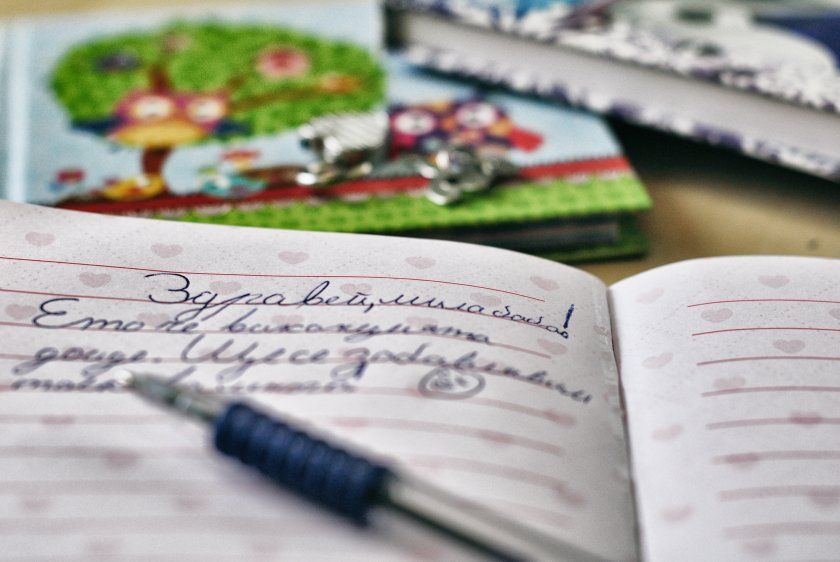 Здравей, мила бабо!
Ето че ваканцията
дойде. Ще се забавлявам